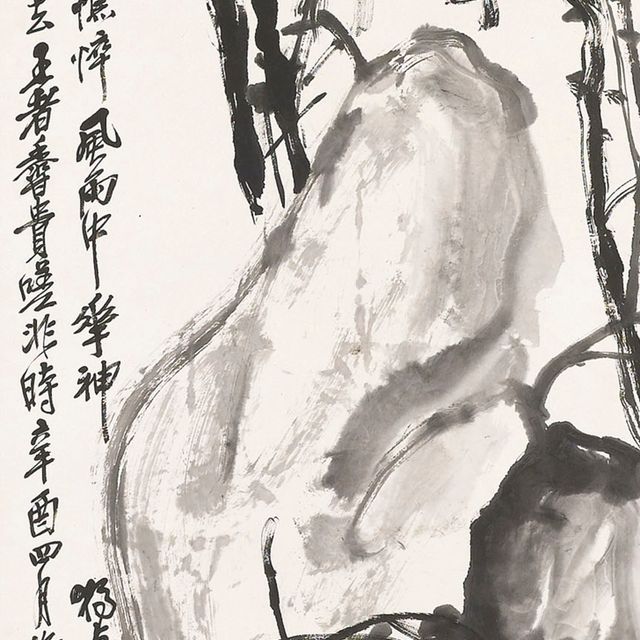 憔悴風雨中華神
去王者尊貴嗟非時辛酉四月